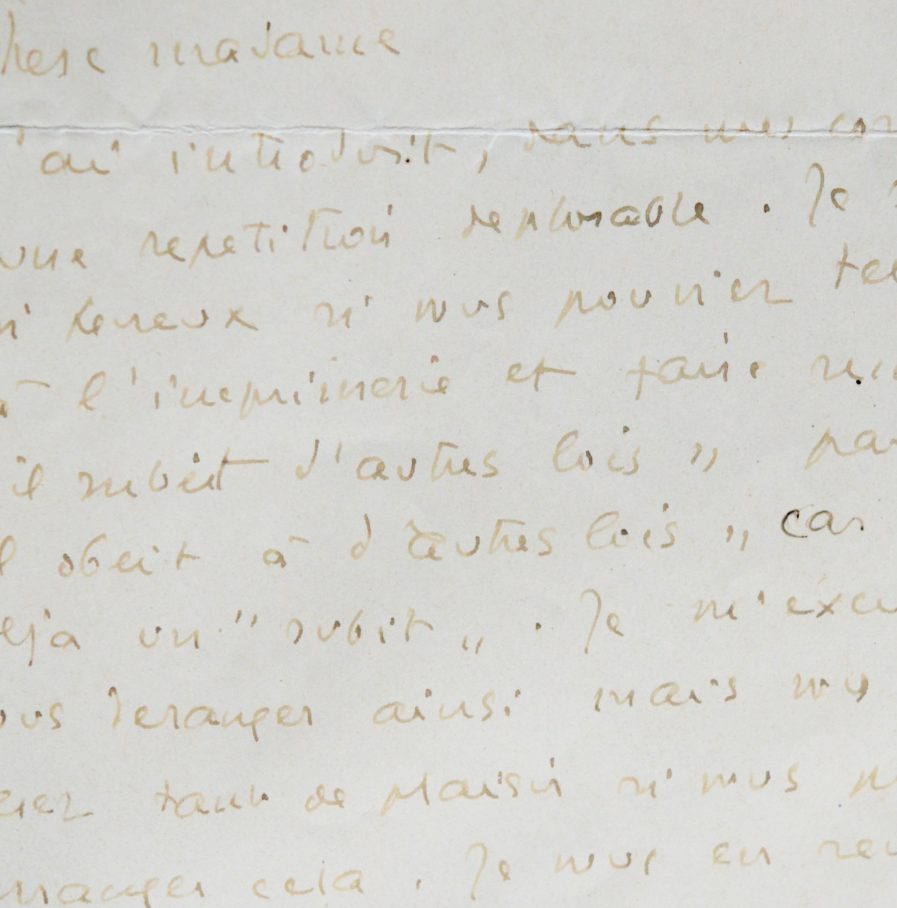 here madame
'ai introduit, dans mes cor
une repetition deplorable. Je
si hereux si vous pouviez tel
à l'imprimerie et faire
il subit d'autres lois „ par
l obeit à d'autres lois „ car
eja un " subit „. Je m'excu
ous deranger ainsi mais vous
riez tant de plaisir si vous p
rranger cela. Je vous en rem